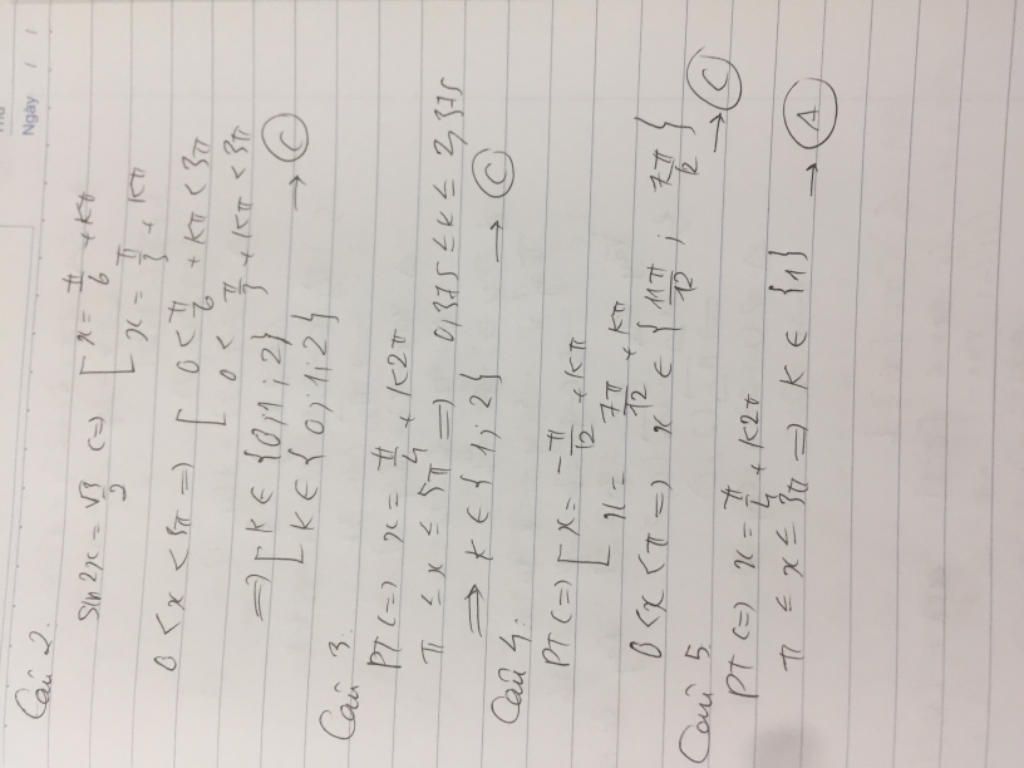 Ngày
Câu 2.
sin 2x = √3/2 (=) [ x = π/6 + kπ
[ x = π/3 + kπ
0 < x < 3π =) [ 0 < π/6 + kπ < 3π
[ 0 < π/3 + kπ < 3π
=) [ K ∈ {0; 1; 2}
[ K ∈ {0; 1; 2} → C
Câu 3.
PT (=) x = π/4 + k2π
π ≤ x ≤ 5π =) 0,375 ≤ k ≤ 2,375
=> K ∈ {1; 2} → C
Câu 4:
PT (=) [ x = -π/12 + kπ
[ x = 7π/12 + kπ
0 < x < π =) x ∈ {11π/12; 7π/12} → C
Câu 5
PT (=) x = π/4 + k2π
π ≤ x ≤ 3π =) K ∈ {1} → A